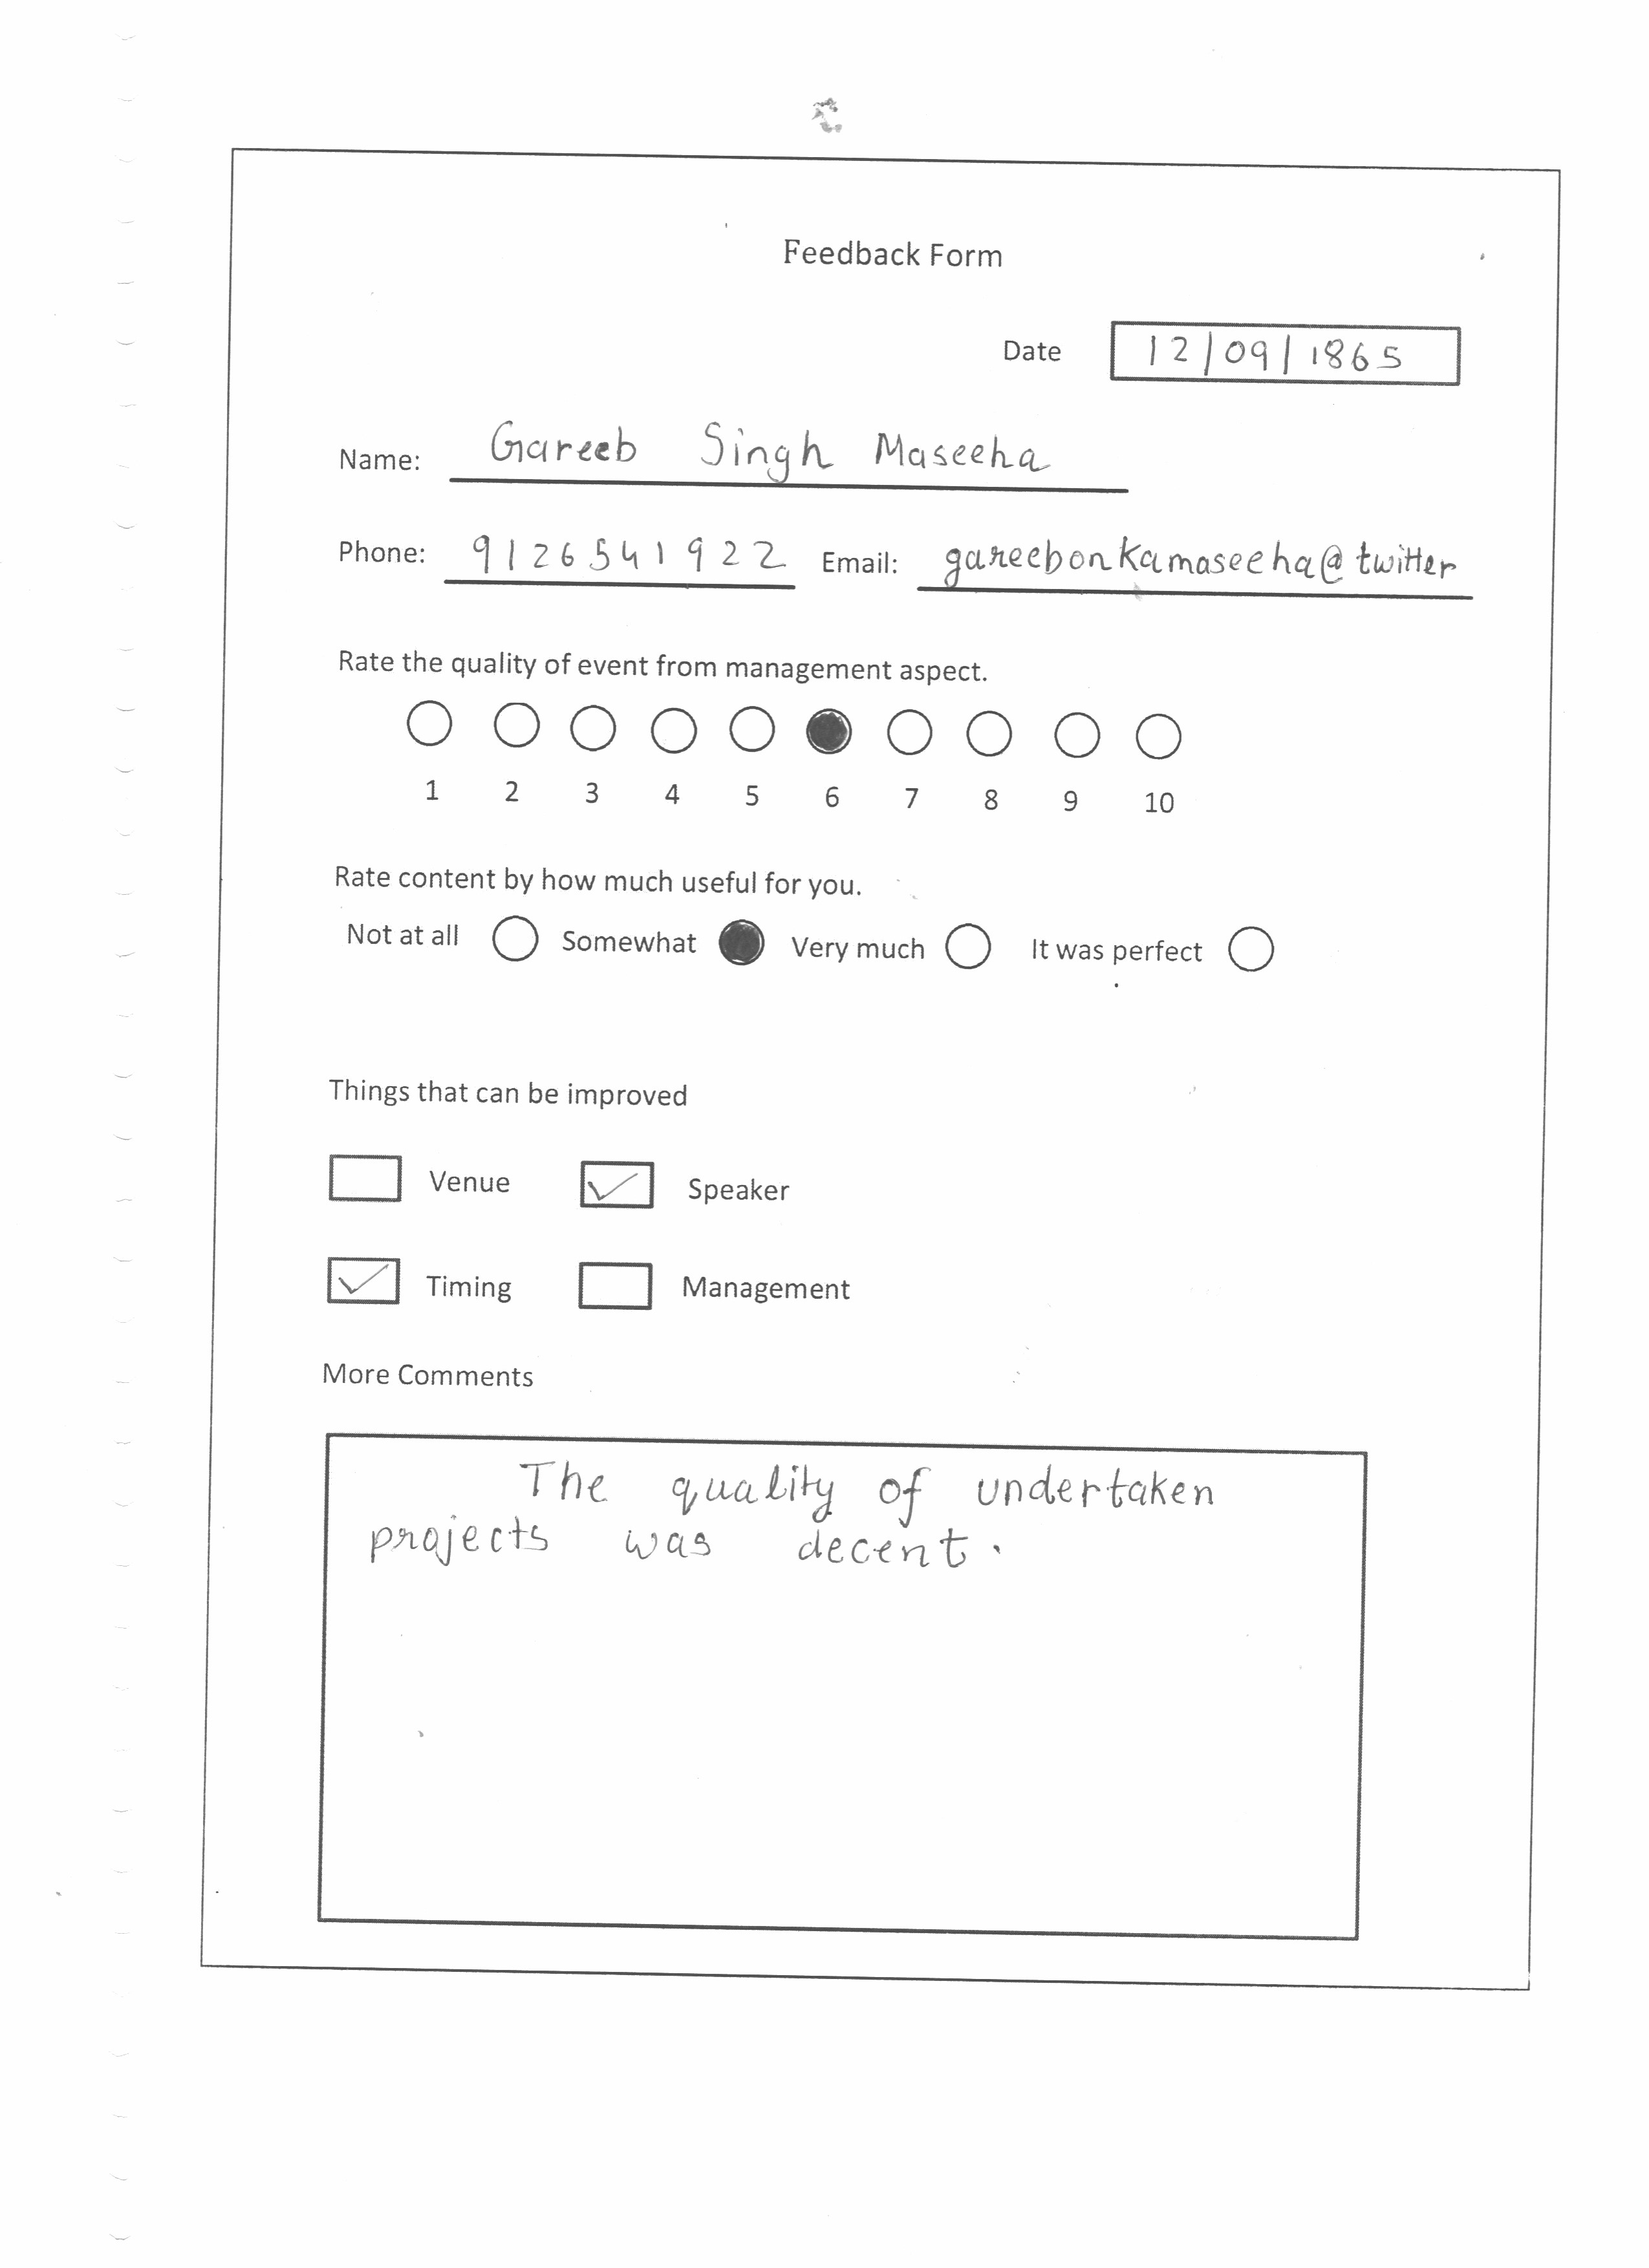 Feedback Form
Date 12/09/1865
Name: Gareeb Singh Maseeha
Phone: 9126541922 Email: gareebonkamaseeha@twitter
Rate the quality of event from management aspect.
1 2 3 4 5 6 7 8 9 10
Rate content by how much useful for you.
Not at all Somewhat Very much It was perfect
Things that can be improved
Venue Speaker
Timing Management
More Comments
The quality of undertaken
projects was decent.